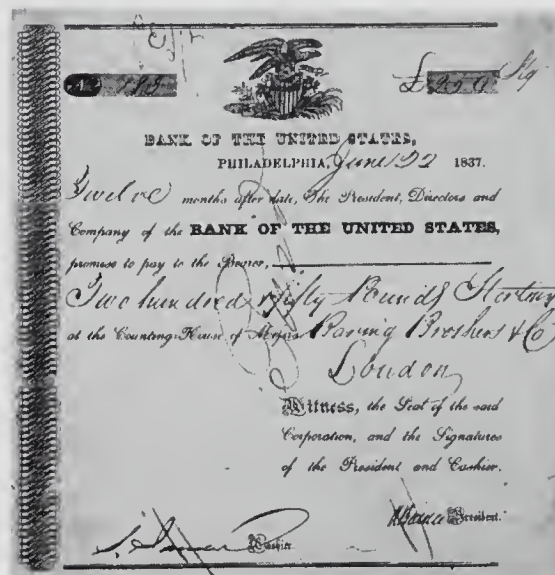 £ 250 Stg
BANK OF THE UNITED STATES,
PHILADELPHIA, June 22 1837.
Twelve months after date, The President, Directors and
Company of the BANK OF THE UNITED STATES,
promise to pay to the Bearer,
Two hundred & fifty Pounds Sterling
at the Counting-House of Messrs Baring Brothers & Co
London
Witness, the Seal of the said
Corporation, and the Signatures
of the President and Cashier.
Cashier. N Biddle President.